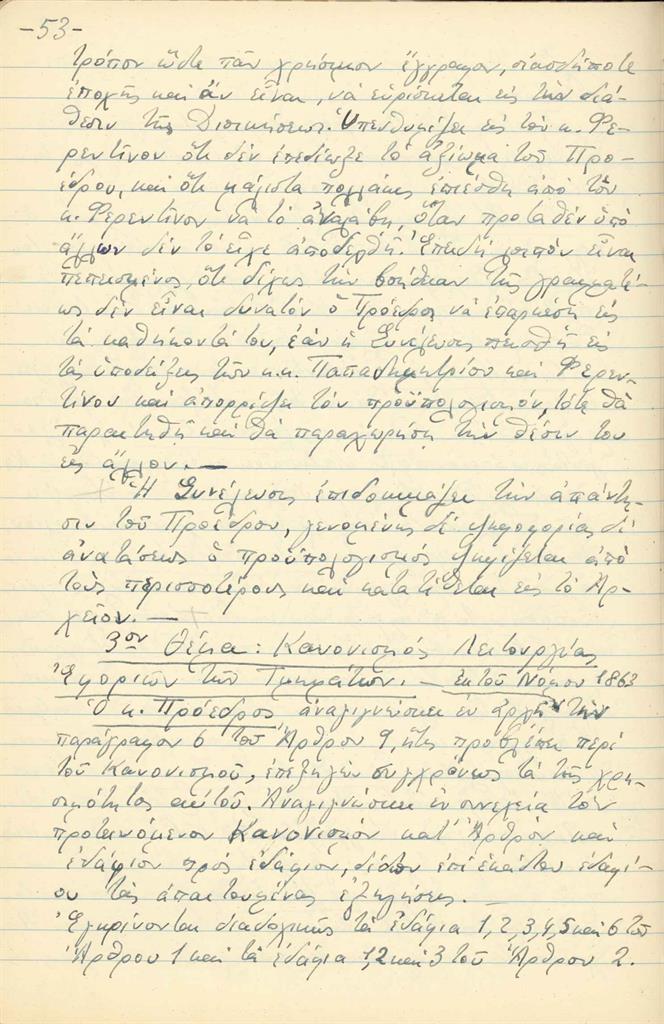 -53-
τρόπον ὥστε πᾶν χρήσιμον ἔγγραφον, οἱασδήποτε
ἐποχῆς καὶ ἄν εἶναι, νά εὑρίσκεται εἰς τὴν διά-
θεσιν τῆς Διοικήσεως. Ὑπενθυμίζει εἰς τὸν κ. Φε-
ρεντῖνον ὅτι δέν ἐπεδίωξε τὸ ἀξίωμα τοῦ Προ-
έδρου, καὶ ὅτι μάλιστα πολλάκις ἐπιέσθη ἀπὸ τὸν
κ. Φερεντῖνον νά τὸ ἀναλάβῃ, ὅταν προταθέν ὑπὸ
ἄλλων δέν τὸ εἶχε ἀποδεχθῆ. Ἐπειδή λοιπόν εἶναι
πεπεισμένος, ὅτι δίχως τὴν βοήθειαν τῆς γραμματέ-
ως δέν εἶναι δυνατόν ὁ Πρόεδρος νά ἐπαρκέσῃ εἰς
τά καθήκοντά του, ἐάν ἡ Συνέλευσις πεισθῇ εἰς
τάς ὑποδείξεις τῶν κ.κ. Παπαδημητρίου καὶ Φερεν-
τίνου καὶ ἀπορρίψει τὸν προϋπολογισμόν, τότε θά
παραιτηθῇ καὶ θά παραχωρήσῃ τὴν θέσιν του
εἰς ἄλλον. —
Ἡ Συνέλευσις ἐπιδοκιμάζει τὴν ἀπάντη-
σιν τοῦ Προέδρου, γενομένης δέ ψηφοφορίας δι'
ἀνατάσεως ὁ προϋπολογισμός ψηφίζεται ἀπό
τούς περισσοτέρους καὶ κατατίθεται εἰς τὸ Ἀρ-
χεῖον. —
3ον Θέμα: Κανονισμός Λειτουργίας
Ἐφοριῶν τῶν Τμημάτων. — ἐκ τοῦ Νόμου 1863
Ὁ κ. Πρόεδρος ἀναγιγνώσκει ἐν ἀρχῇ τὴν
παράγραφον 6 τοῦ Ἄρθρου 9, ἥτις προβλέπει περί
τοῦ Κανονισμοῦ, ἐπεξηγῶν συγχρόνως τά τῆς χρη-
σιμότητος αὐτοῦ. Ἀναγιγνώσκει ἐν συνεχείᾳ τὸν
προτεινόμενον Κανονισμόν κατ' Ἄρθρον καὶ
ἐδάφιον πρός ἐδάφιον, δίδων ἐπί ἑκάστου ἐδαφί-
ου τάς ἀπαιτουμένας ἐξηγήσεις. —
Ἐγκρίνονται διαδοχικῶς τά ἐδάφια 1, 2, 3, 4, 5 καὶ 6 τοῦ
Ἄρθρου 1 καὶ τά ἐδάφια 1, 2 καὶ 3 τοῦ Ἄρθρου 2.